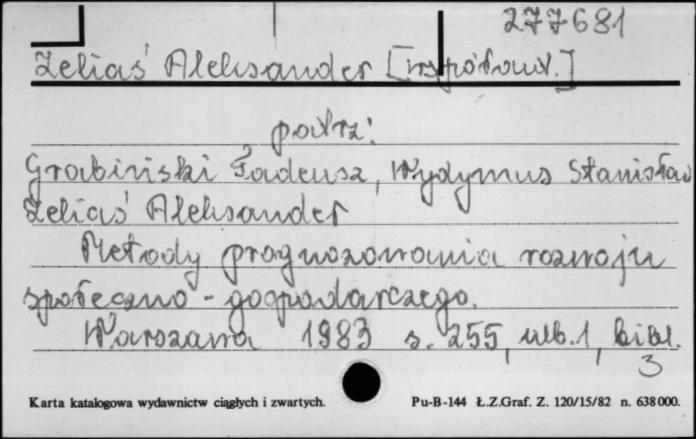 277681
Zeliaś Aleksander [współaut.]
patrz:
Grabiński Tadeusz, Wydymus Stanisław
Zeliaś Aleksander
Metody prognozowania rozwoju
społeczno-gospodarczego.
Warszawa 1983 s. 255, nlb. 1, bibl.
3
Karta katalogowa wydawnictw ciągłych i zwartych. Pu-B-144 Ł.Z.Graf. Z. 120/15/82 n. 638000.